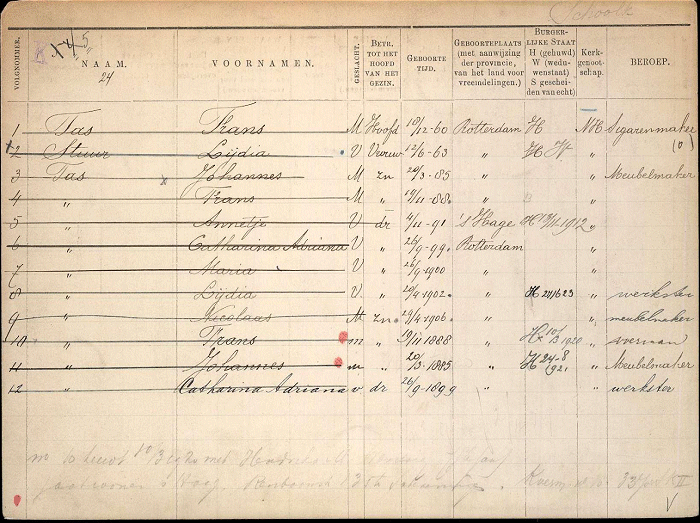 Schoolk
VOLGNOMMER.
NAAM.
24
VOORNAMEN.
GESLACHT.
BETR. TOT HET HOOFD VAN HET GEZIN.
GEBOORTE TIJD.
GEBOORTEPLAATS (met aanwijzing der provincie, van het land voor vreemdelingen.)
BURGERLIJKE STAAT H (gehuwd) W (weduwenstaat) S gescheiden van echt)
Kerkgenootschap.
BEROEP.
1 Tas Frans M Hoofd 18/12-60 Rotterdam H NH Sigarenmaker
2 Stuur Lijdia V Vrouw 12/6-63 " H W. " (o)
3 Tas Johannes M zn 20/3-85 " " Meubelmaker
4 " Frans M " 19/11-88. " "
5 " Annetje V dr 4/11-91 's Hage H 1912 "
6 " Catharina Adriana V " 26/9-99. Rotterdam "
7 " Maria V " 26/9-1900 " "
8 " Lijdia V. " 20/4-1902. " H 24/6 23 " werkster
9 " Nicolaas M zn. 29/4-1906. " " meubelmaker
10 " Frans m " 19/11 1888 " H 10/3 1920 " voerman
11 " Johannes m " 20/3-1885 " H 24-8/921 " Meubelmaker
12 " Catharina Adriana v dr 26/9-1899 " " werkster
no 10 10/3 met